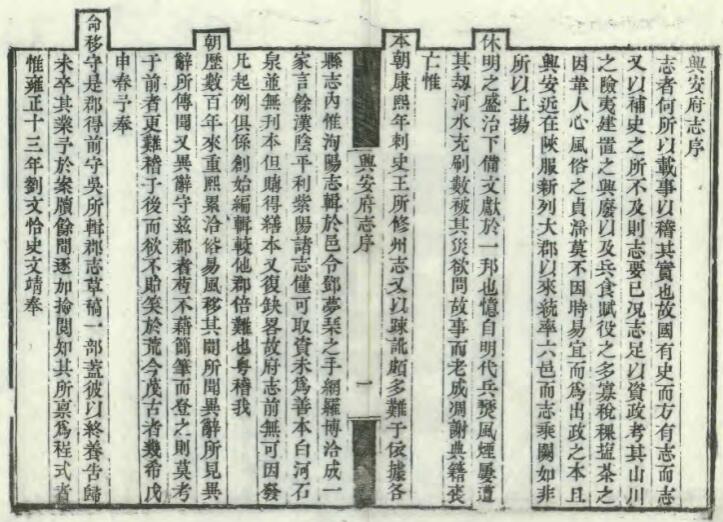 興安府志序
志者何所以載事以稽其實也故國有史而方有志而志
又以補史之所不及則志要已况志足以資政考其山川
之險夷建置之興廢以及兵食賦役之多寡稅稞塩茶之
因革人心風俗之貞滛莫不因時易宜而為出政之本且
興安近在陝服新列大郡以來統率六邑而志乘闕如非
所以上揚
休明之盛治下備文獻於一邦也憶自明代兵燹風煙屢遭
其刼河水充刷數被其災欲問故事而老成凋謝典籍喪
亡惟
本朝康熙年刺史王所修州志又以踈訛頗多難于依據各
興安府志序
一
縣志內惟洵陽志輯於邑令鄧夢琴之手網羅博洽成一
家言餘漢陰平利紫陽諸志僅可取資未為善本白河石
泉並無刋本但購得繕本又復缺畧故府志前無可因發
凡起例俱係創始編輯較他郡倍難也粵稽我
朝歷數百年來重熙累洽俗易風移其間所聞異辭所見異
辭所傳聞又異辭守兹郡者苟不藉簡筆而登之則莫考
于前者更難稽于後而欲不貽笑於荒今茂古者幾希戊
申春予奉
命移守是郡得前守吳所輯郡志草稿一部葢彼以終養告歸
未卒其業予於案牘餘間逐加掄閱知其所禀為程式者
惟雍正十三年劉文恪史文靖奉